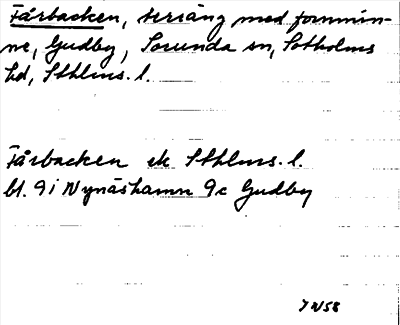 Fårbacken, terräng med fornmin-
ne, Gudby, Sorunda sn, Sotholms
hd, Sthlms. l.
Fårbacken ek Sthlms. l.
bl. 9i Nynäshamn 9c Gudby
58